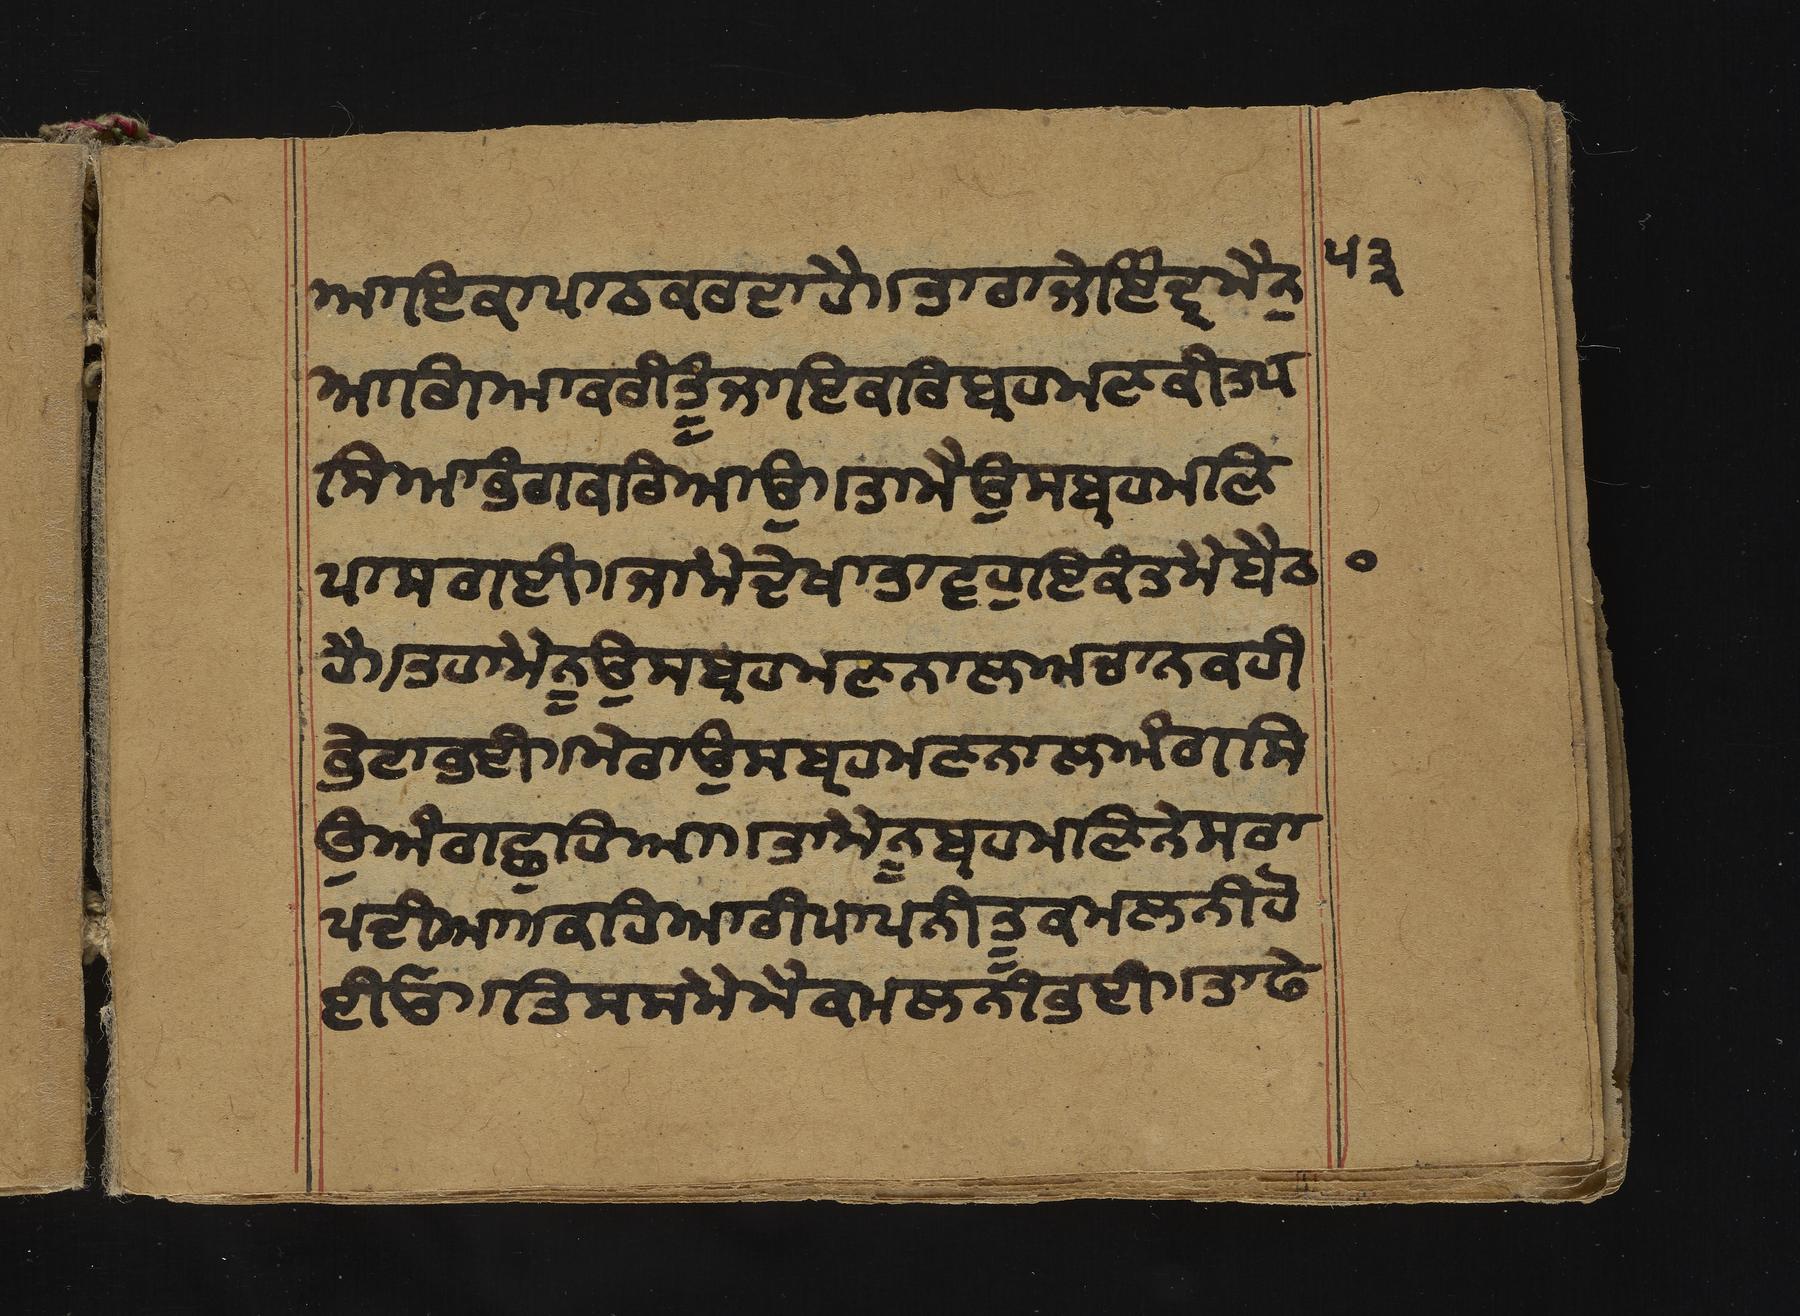 ਆਇਕਾਪਾਠਕਰਦਾਹੈ।ਤਾਰਾਜੇਇੰਦ੍ਰਮੈਨੁ ੫੩
ਆਗਿਆਕਰੀਤੂੰਜਾਇਕਰਿਬ੍ਰਹਮਣਕੀਤਪ
ਸਿਆਭੰਗਕਰਿਆਉ।ਤਾਮੈਉਸਬ੍ਰਹਮਣਿ
ਪਾਸਗਈ।ਜਾਂਮੇਦੇਖਾਤਾਵਹੁਇਕੰਤਮੇਬੈਠ ੦
ਹੈ।ਤਹਾਮੇਨੂਉਸਬ੍ਰਹਮਣਨਾਲਅਚਾਨਕਹੀ
ਭੇਟਾਭਈ।ਮੇਰਾਉਸਬ੍ਰਹਮਣਨਾਲਅੰਗਸਿ
ਉਅੰਗਛੁਹਿਆ।ਤਾਮੇਨੂਬ੍ਰਹਮਣਿਨੇਸਰਾ
ਪਦੀਆ।ਕਹਿਆਰੀਪਾਪਨੀਤੂਕਮਲਨੀਹੋ
ਈਓ।ਤਿਸਸਮੇਮੈਕਮਲਨੀਭਈ।ਤਾਫੇ